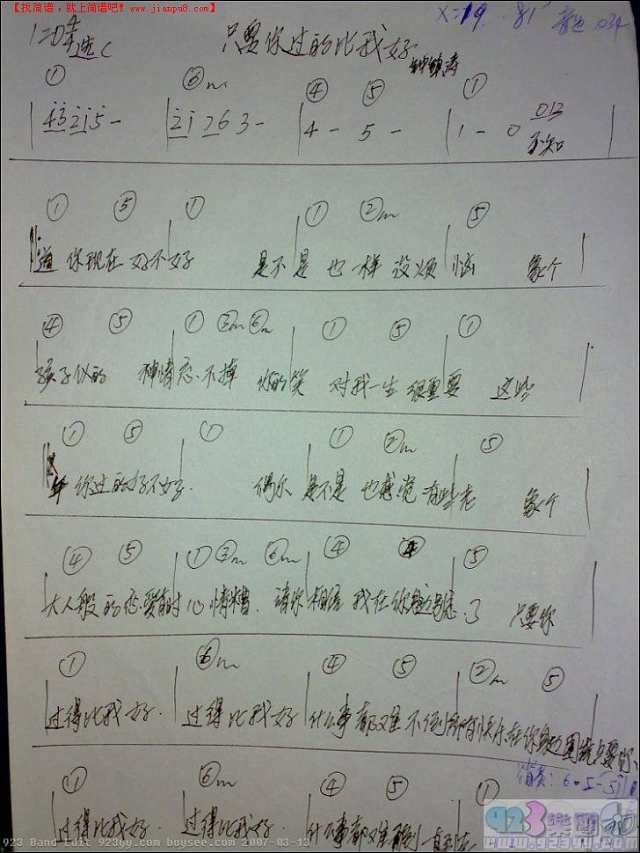 【找简谱，就上简谱吧!!】
www.jianpu8.com
X=19 81
只要你过的比我好
选C
钟镇涛
① ⑥m ④ ⑤ ①
4 3 2 1 5 - 2 1 7 6 3 - 4 - 5 - 1 - 0 012
不知
① ⑤ ① ① ②m ⑤
道 你现在 好不好 是不是 也一样 没烦恼 象个
④ ⑤ ① ③m ⑥m ① ⑤ ①
孩子似的 神情忘不掉 你的笑 对我一生 很重要 这些
① ⑤ ① ① ②m ⑤
年 你过的好不好 偶尔 是不是 也感觉 有些老 象个
④ ⑤ ① ③m ⑥m ④ ⑤
大人般 的恋爱 有时 心情糟 请你相信 我在你 了 只要你
① ⑥m ④ ⑤ ②m ⑤
过得比我好 过得比我好 什么事都难不倒 所有快乐在你身边围绕 只要你
① ⑥m ④ ⑤ ①
过得比我好 过得比我好 什么事都难不倒 一直到老
923樂團
www.923gy.com
923 Band Full 923gy.com buysee.com 2007-03-13